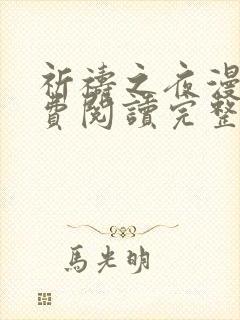 祈禱之夜漫
費閱讀完整
馬光明